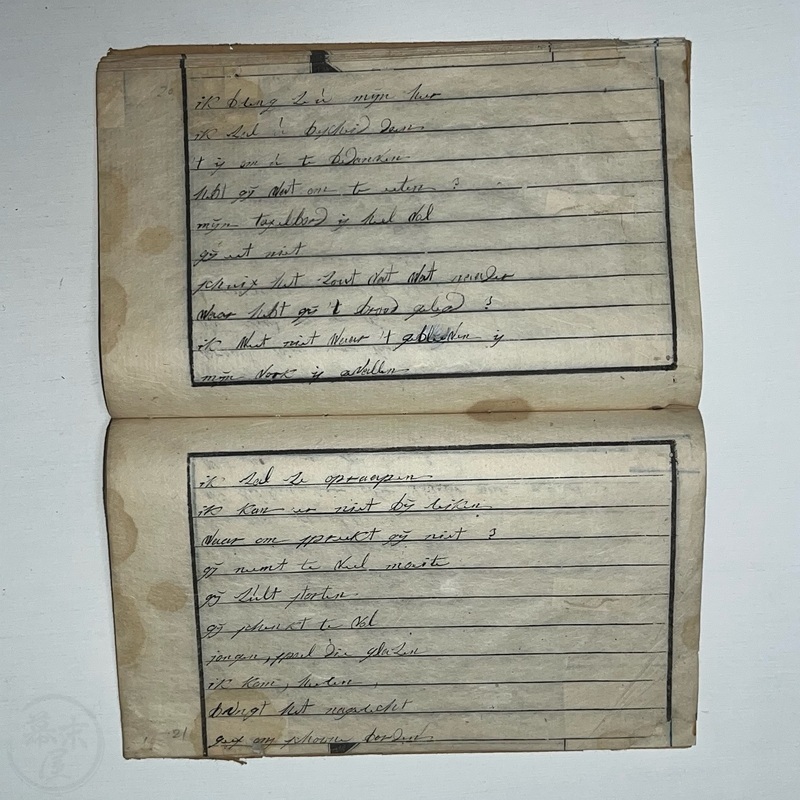 ik breng Ze u mijn heer
ik Zal u bescheid doen
't is om u te bedanken
hebt gij Wat om te eeten?
mijn tafelbord is heel Vol
gij eet niet
schuif het Zout Vat Wat nader
Waar hebt gij 't brood gelegd?
ik Weet niet Waar 't gebleeven is
mijn Vork is
ik Zal Ze opraapen
ik kan er niet bij
Waar om spreekt gij niet?
gij neemt te Veel moeite
gij Zult storten
gij schenkt te Vol
jongen, spoel die glazen
ik kom, heeren
brengt het nagerecht
geef ons schoone borden
21